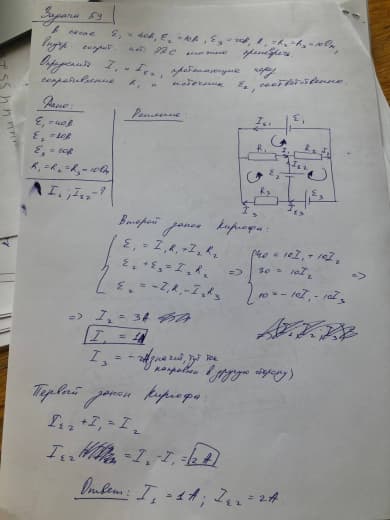 Задача 5.9
В схеме ℰ₁ = 40В, ℰ₂ = 10В, ℰ₃ = 20В, R₁ = R₂ = R₃ = 10 Ом,
внутр. сопрот. ист. ЭДС можно пренебречь
Определить I₁ и I_ε₂, протекающие через
сопротивление R₁ и источник ℰ₂, соответственно
Дано:
Решение
ℰ₁ = 40В
ℰ₃ = 20В
R₁ = R₂ = R₃ = 10 Ом
I₁, I_ε₂ - ?
I_ε₁ ℰ₁
R₁ I₁ R₂ I₂
ℰ₂
R₃ ℰ₃
I₃ I_ε₃
Второй закон Кирхгофа:
ℰ₁ = I₁R₁ + I₂R₂
ℰ₂ + ℰ₃ = I₂R₂
ℰ₂ = -I₁R₁ - I₃R₃
=>
40 = 10I₁ + 10I₂
30 = 10I₂
10 = -10I₁ - 10I₃
=>
=> I₂ = 3А
I₁ = 1А
I₃ = -2А (значит, тут ток
направлен в другую сторону)
Первый закон Кирхгофа
I_ε₂ + I₁ = I₂
I_ε₂ = I₂ - I₁ = 2А
Ответ: I₁ = 1А; I_ε₂ = 2А